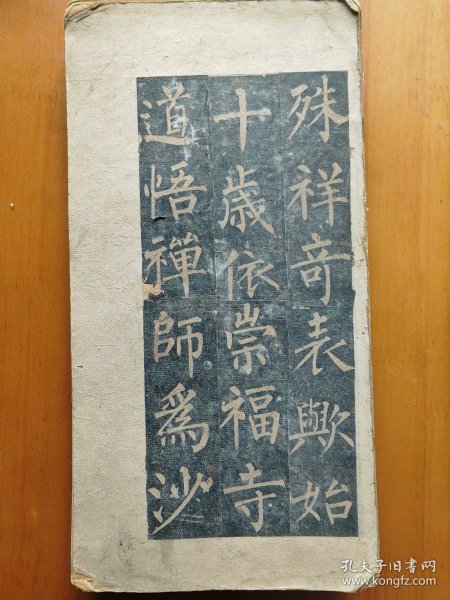 殊祥奇表歟始
十歲依崇福寺
道悟禪師為沙
孔夫子旧书网
www.kongfz.com